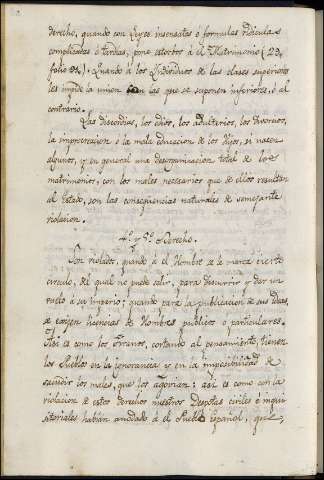 derecho, quando con Leyes insensatas ó formulas ridiculas
complicadas ó tardias, pone estorbos á el Matrimonio (29.
folio 21.). Quando á los Individuos de las clases superiores
les impide la union con las que se suponen inferiores, ó al
contrario.
Las discordias, los odios, los adulterios, los divorcios,
la improcreacion ó la mala educacion de los hijos, si nacen
algunos, y en general una desorganizacion total de los
matrimonios, con los males necesarios que de ellos resultan
al Estado, son las conseqüencias naturales de semejante
violacion.
4.º y 5.º Derecho.
Son violados, quando á el Hombre se le marca cierto
circulo, del qual no puede salir, para discurrir y dar un
vuelo á su imperio; quando para la publicacion de sus ideas,
se exigen licencias de Hombres publicos ó particulares.
Asi es como los tiranos, cortando al pensamiento, tienen
los Pueblos en la ignorancia y en la imposibilidad de
sacudir los males, que los agovian: asi es como con la
violacion de estos derechos nuestros Despotas civiles é inqui-
sitoriales habian anodado á el Pueblo Español, que,